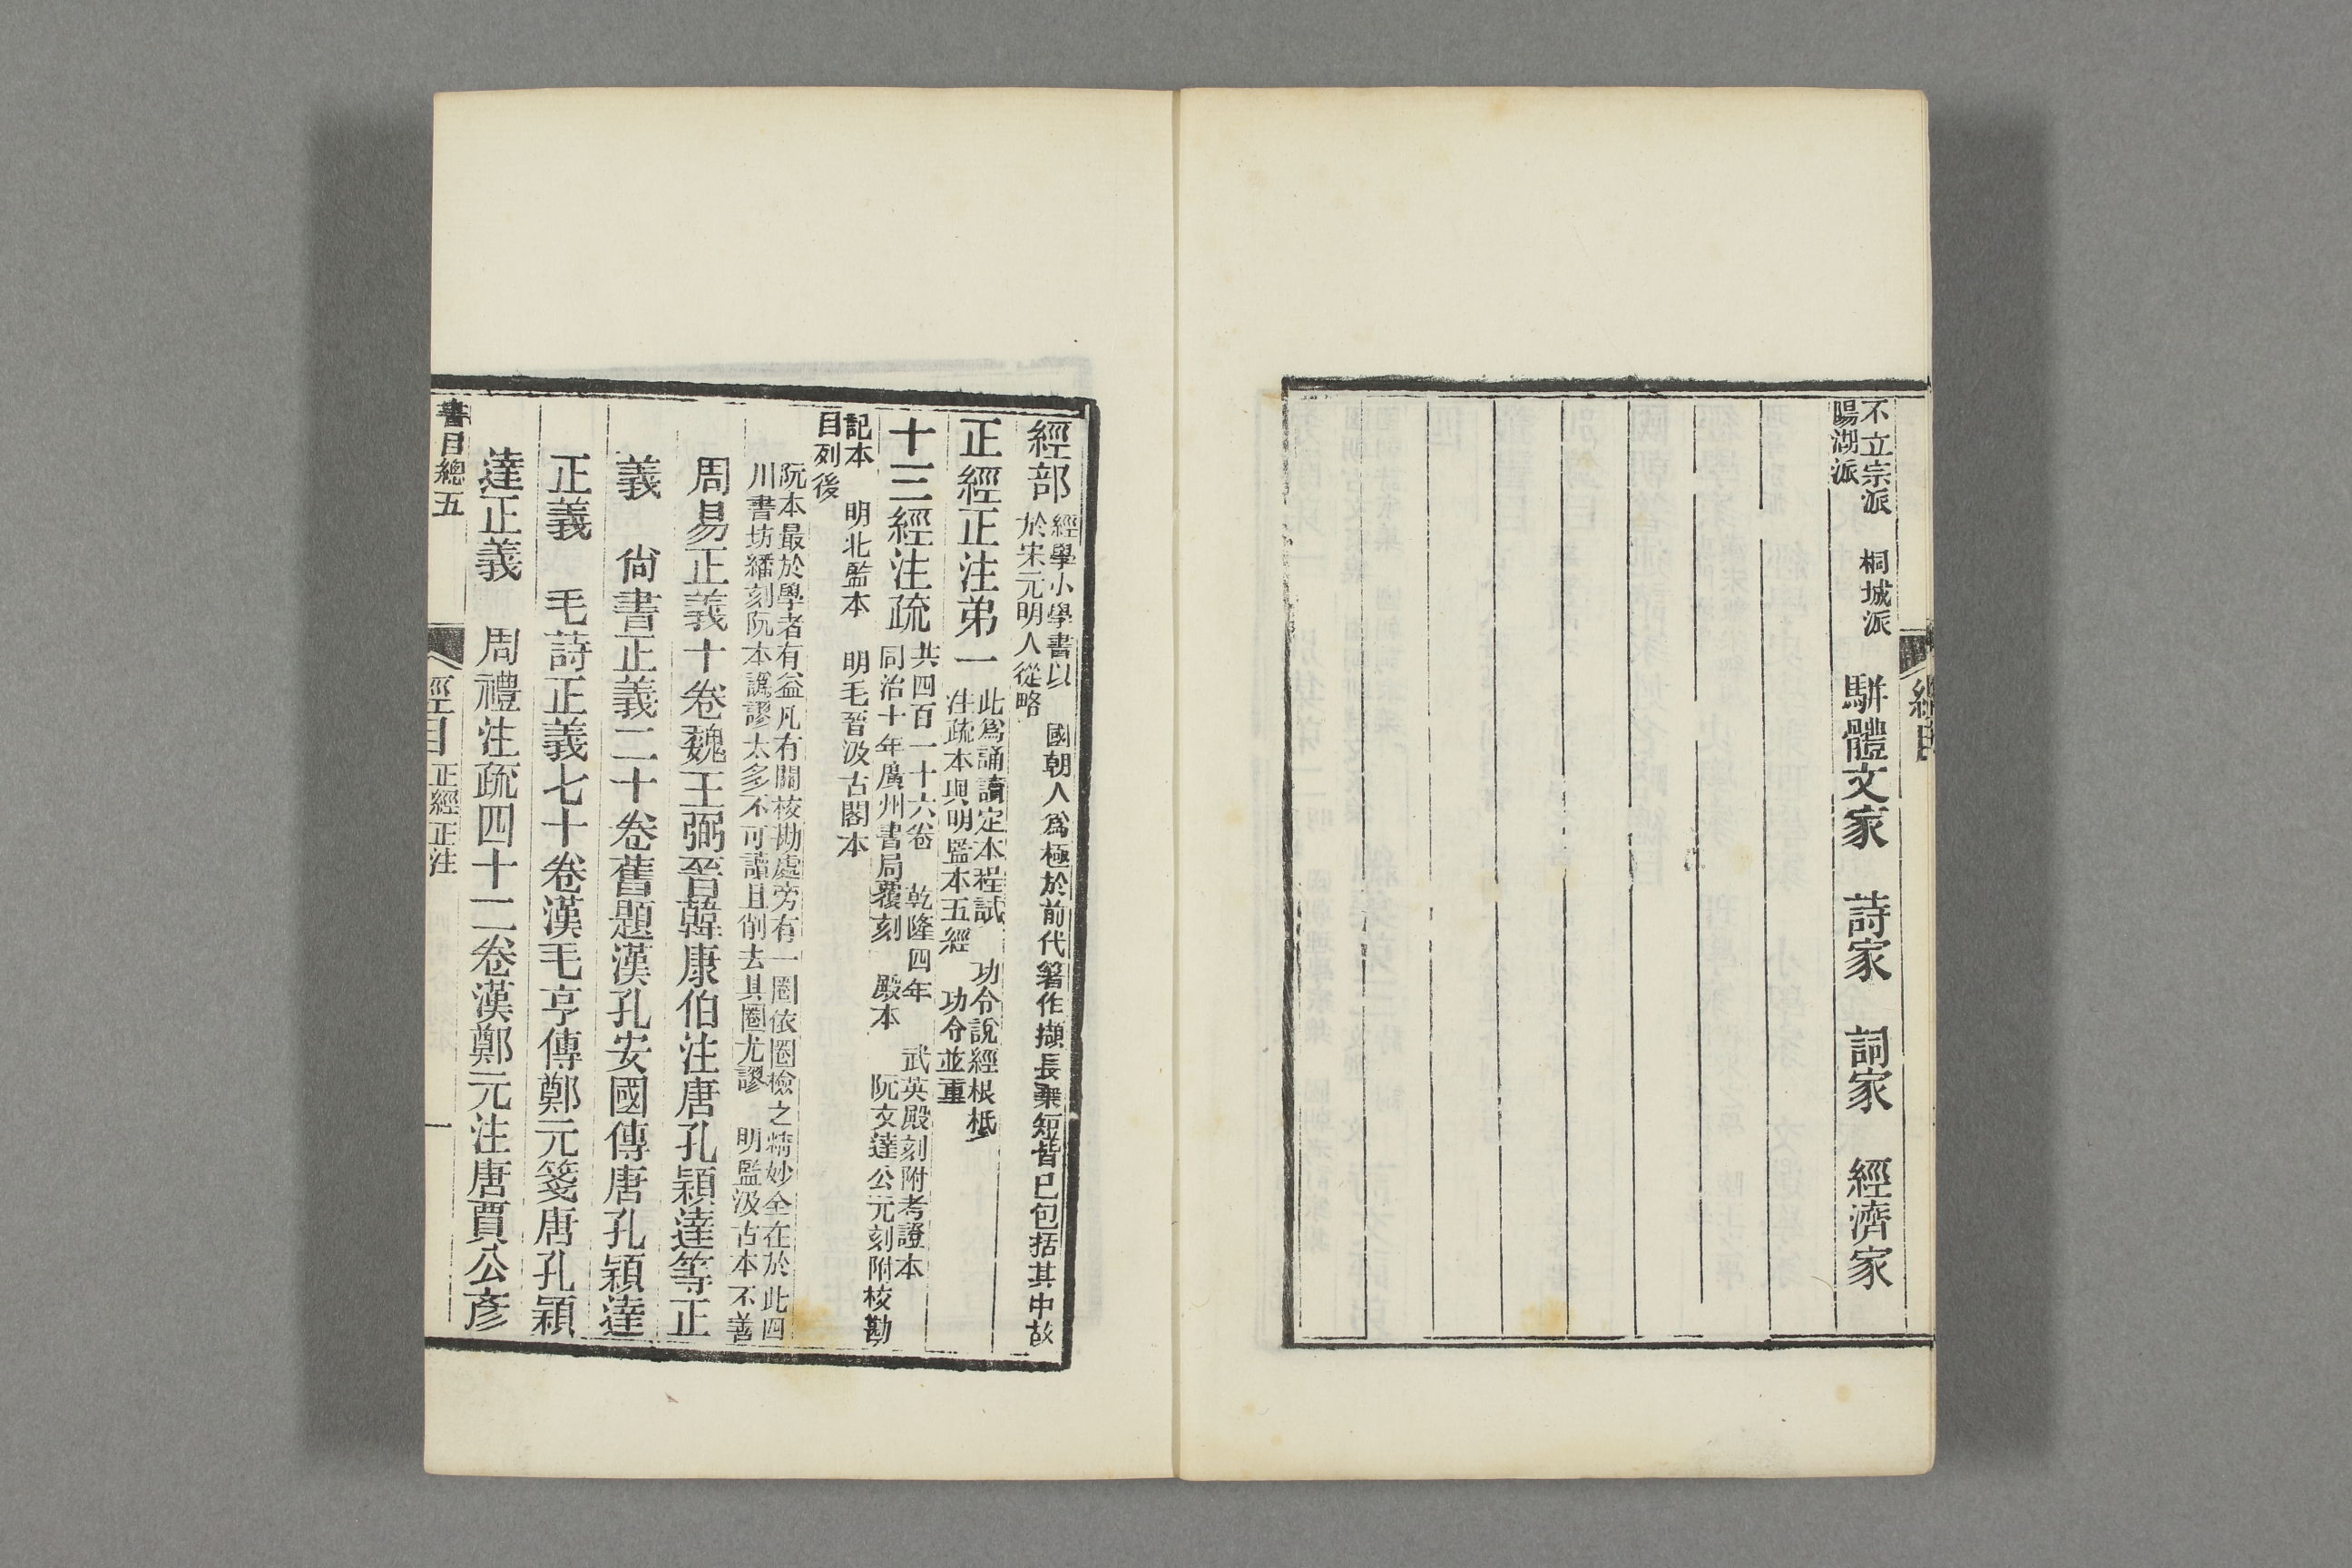 不立宗派　桐城派
陽湖派
駢體文家　詩家　詞家　經濟家
經部
經學小學書以　國朝人爲極於前代箸作擷長棄短皆已包括其中故
於宋元明人從略
正經正注弟一
此爲誦讀定本程試　功令說經根柢
注疏本與明監本五經　功令並重
十三經注疏
共四百一十六卷　乾隆四年　武英殿刻附考證本
同治十年廣州書局覆刻　殿本　阮文達公元刻附校勘
記本　明北監本　明毛晉汲古閣本
目列後
阮本最於學者有益凡有關校勘處旁有一圈依圈檢之精妙全在於此四
川書坊繙刻阮本譌謬太多不可讀且削去其圈尤謬　明監汲古本不善
周易正義十卷魏王弼晉韓康伯注唐孔穎達等正
義　尙書正義二十卷舊題漢孔安國傳唐孔穎達
正義　毛詩正義七十卷漢毛亨傳鄭元箋唐孔穎
達正義　周禮注疏四十二卷漢鄭元注唐賈公彥
書目總五　經目　正經正注　一